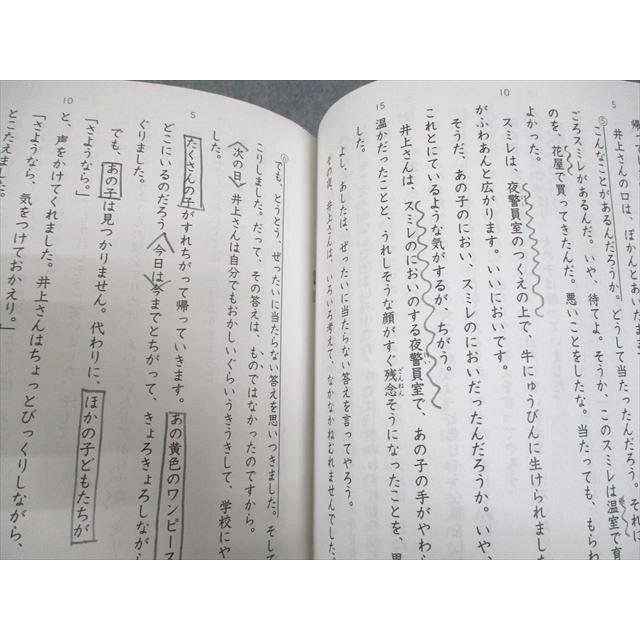 5
10
15
帰って
井上さんの口は、ぽかんとあいたまま
⑤こんなことがあるんだろうか。どうして当たったんだろう。それに
ごろスミレがあるんだ。いや、待てよ。そうか、このスミレは温室で育
のを、花屋で買ってきたんだ。悪いことをしたな。当たっても、もらわ
よかった。
スミレは、夜警員室のつくえの上で、牛にゅうびんに生けられまし
がふわあんと広がります。いいにおいです。
そうだ、あの子のにおい、スミレのにおいだったんだろうか。いや、
これとにているような気がするが、ちがう。
井上さんは、スミレのにおいのする夜警員室で、あの子の手がやわら
温かだったことと、うれしそうな顔がすぐ残念そうになったことを、思
ざんねん
した。
よし、あしたは、ぜったいに当たらない答えを言ってやろう。
その夜、井上さんは、いろいろ考えて、なかなかねむれませんでした。
5
10
⑥でも、とうとう、ぜったいに当たらない答えを思いつきました。そして
こりしました。だって、その答えは、ものではなかったのですから。
次の日、井上さんは自分でもおかしいぐらいうきうきして、学校にや
ました。
たくさんの子がすれちがって帰っていきます。あの黄色のワンピース
どこにいるのだろう。今日は今までとちがって、きょろきょろしながら
ぐりました。
でも、あの子は見つかりません。代わりに、ほかの子どもたちが
「さようなら。」
と、声をかけてくれました。井上さんはちょっとびっくりしながら、
「さようなら、気をつけておかえり。」
とこたえました。